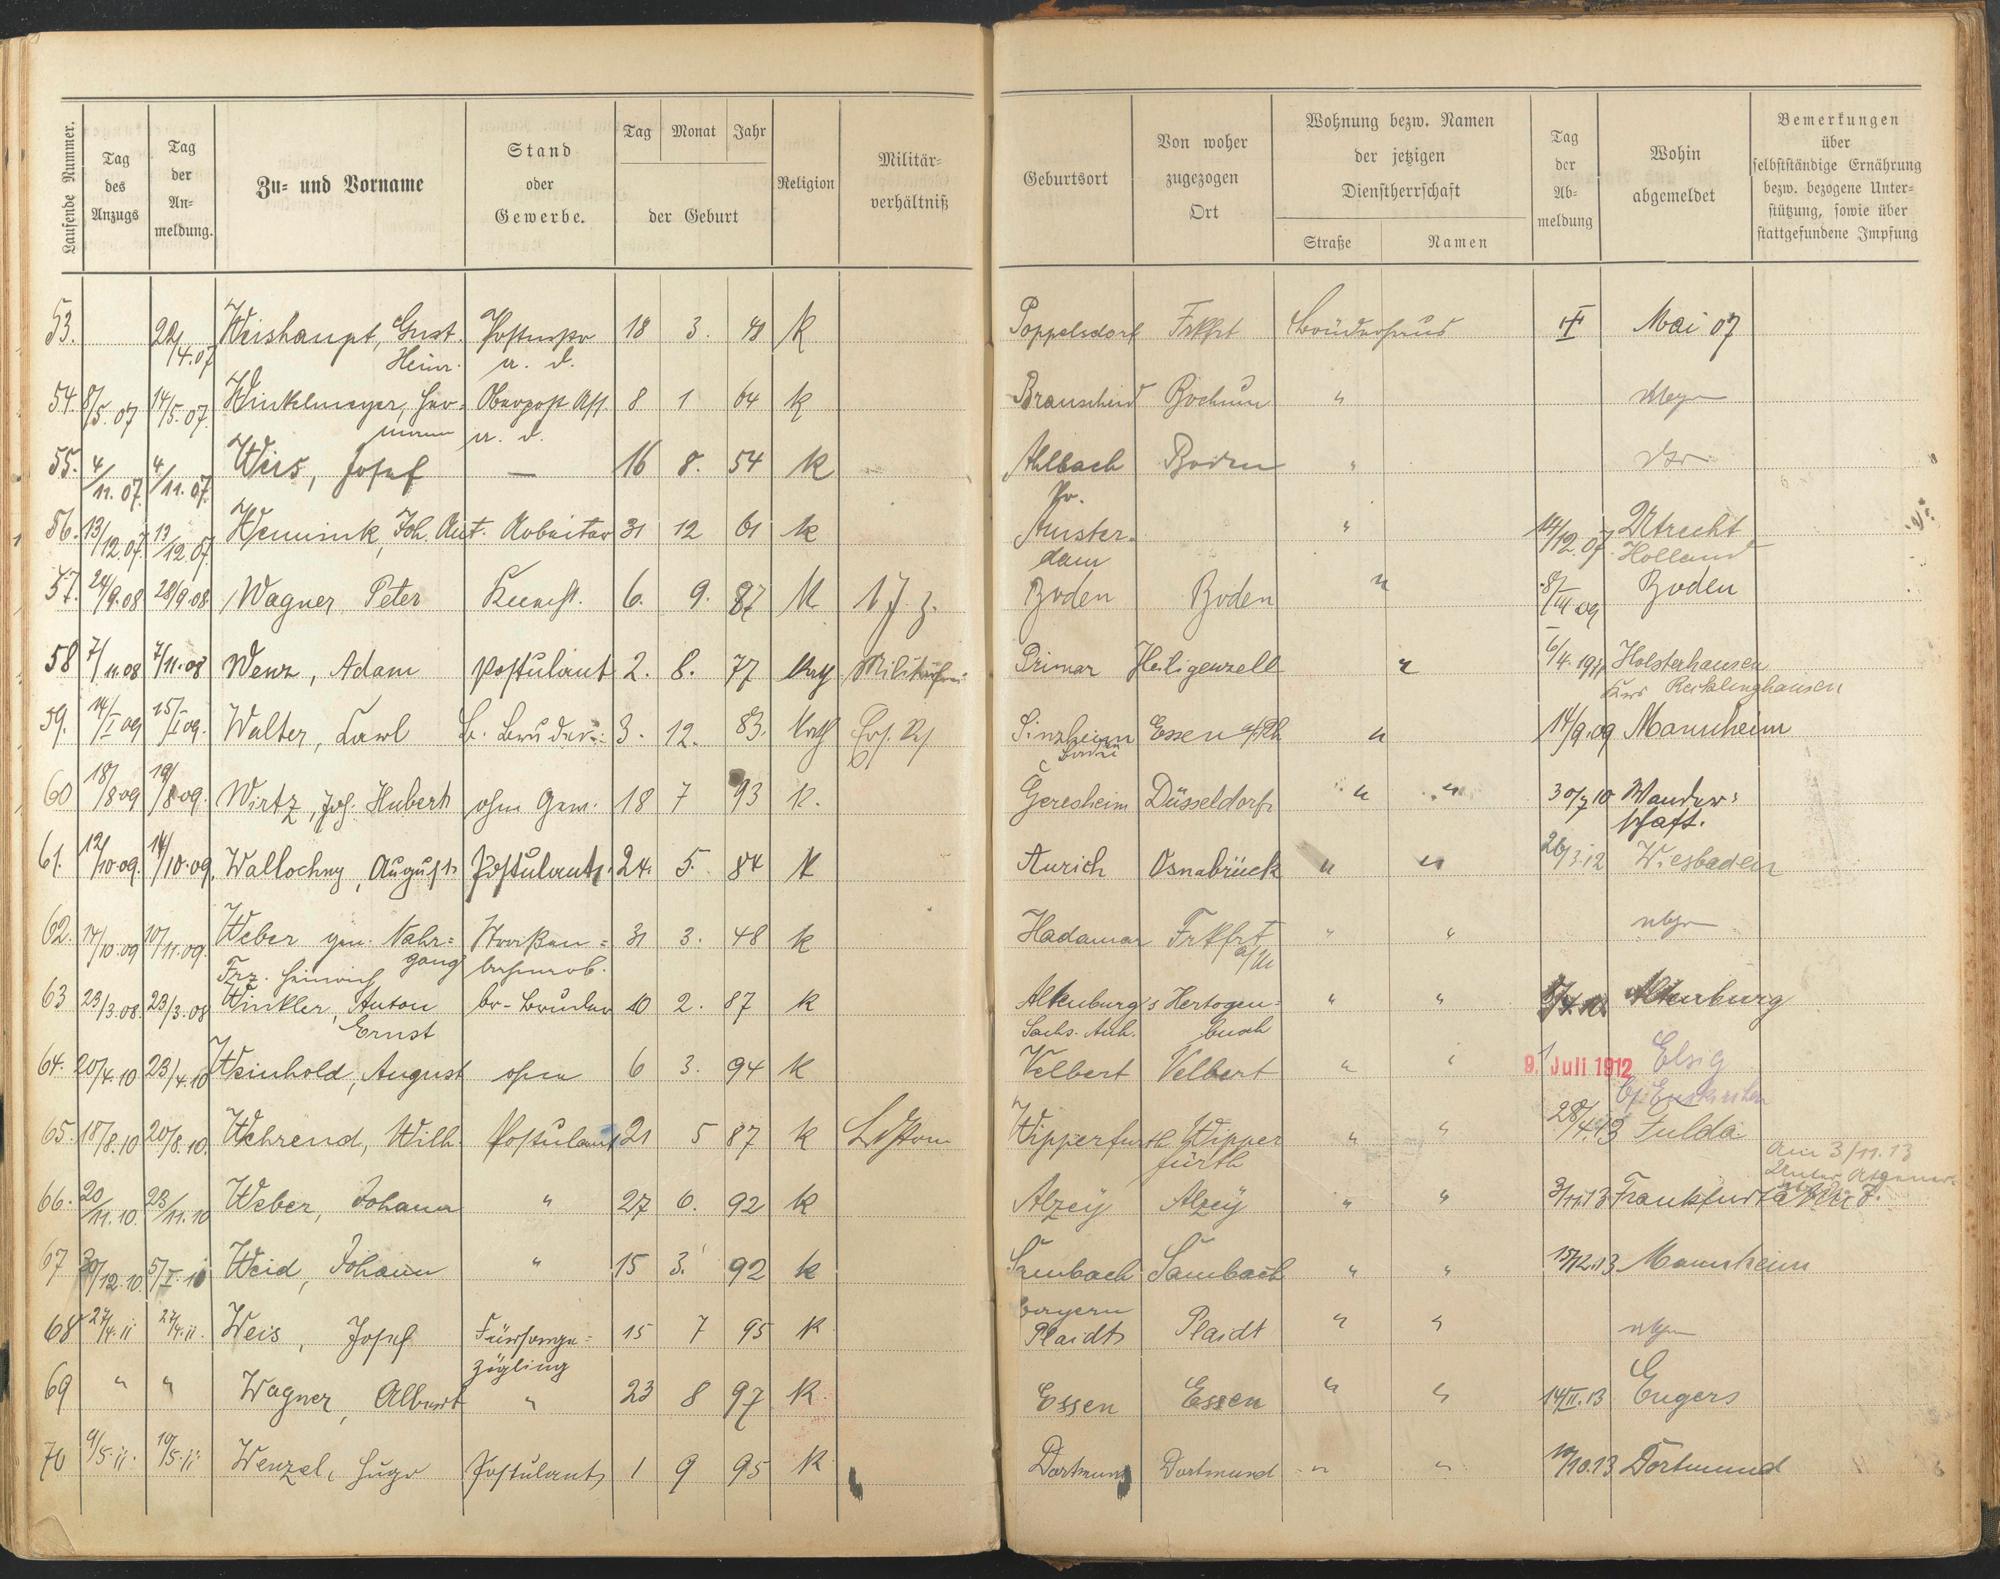 Laufende Nummer.
Tag des Anzugs
Tag der An-meldung.
Zu- und Vorname
Stand oder Gewerbe.
Tag Monat Jahr
der Geburt
Religion
Militär-verhältniß
Geburtsort
Von woher zugezogen Ort
Wohnung bezw. Namen der jetzigen Dienstherrschaft
Straße Namen
Tag der Ab-meldung
Wohin abgemeldet
Bemerkungen über selbstständige Ernährung bezw. bezogene Unter-stützung, sowie über stattgefundene Impfung
53. 22/4.07 Weishaupt, Gust. 18 3. K Poppelsdorf Frkfrt Brüderhaus Mai 07
Heinr. a. D.
54. 8/5.07 14/5.07. Winkelmeyer, Her- Oberpost Ass. 8 1 64 K Brauscheid Bochum "
mann a. D.
55. 4/11.07. 4/11.07. Weis, Josef — 16 8. 54 K Ahlbach Boden "
56. 13/12.07 13/12.07 Wennink, Joh. Ant. Arbeiter 31 12 61 K Amster- " 14/12.07 Utrecht
dam Holland
57. 24/9.08 28/9.08 Wagner Peter 6. 9. 87 K Boden Boden " 8/III 09 Boden
58 7/11.08 7/11.08 Wenz, Adam Postulant 2. 8. 77 Kath Militärfrei Heiligenzell " 6/4. 1911 Holsterhausen
Kreis Recklinghausen
59. 14/I 09 15/I 09. Walter, Karl B. Bruder 3. 12. 83. Kath Sinzheim Essen a/Rh " 14/9.09 Mannheim
Baden
60 18/8 09 19/8 09. Wirtz, Joh. Hubert ohne Gew. 18 7 93 K. Geresheim Düsseldorf " " 30/7 10 Wander-
schaft.
61. 12/10.09. 14/10.09. Wallochny, August Postulant 24. 5. 84 K Aurich Osnabrück " " 26/3.12 Wiesbaden
62. 14/10.09 10/11.09. Weber gen. Nahr- Straßen- 31 3. 48 K Hadamar Frkfrt " "
gang bahnarb. a/M
Frz. Heinrich
63 23/3.08. 23/3.08 Winkler, Anton br-Bruder 10 2. 87 K Altenburg s Hertogen- " " Altenburg
Ernst Sachs. Anh. busch
64. 20/4.10 23/4.10 Weinhold, August ohne 6 3. 94 K Velbert Velbert " " 9. Juli 1912 Elsig
b/ Euskirchen
65. 18/8.10 20/8.10. Wehrend, Wilh. Postulant 21 5 87 K Wipperfurth Wipper " " 28/4.13 Fulda
fürth
Am 3/11.13
66. 20/11.10. 23/11.10 Weber, Johann " 27 6. 92 K Alzey Alzey " " 3/11.13 Frankfurt a
67 30/12.10 5/I.10 Weid, Johann " 15 3. 92 K Sambach Sambach " " 15/12.13 Mannheim
68 27/4.11 27/4.11. Weis, Josef Fürsorge- 15 7 95 K Bayern
zögling Plaidt Plaidt " "
69 " " Wagner, Albert " 23 8 97 K Essen Essen " " 14/II.13 Engers
70 9/5.11. 10/5.11 Wenzel, Hugo Postulant 1 9 95 K Dortmund Dortmund " " 10/10.13 Dortmund